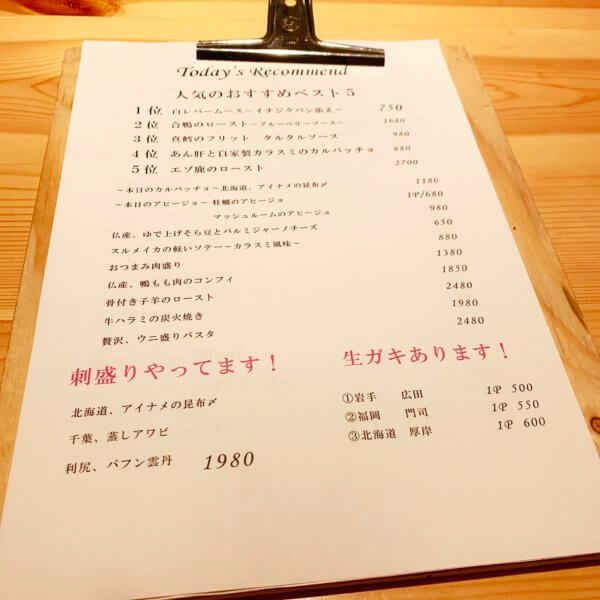 Today's Recommend
人気のおすすめベスト5
1位 白レバームース～イチジクパン添え～ 750
2位 合鴨のロースト～ブルーベリーソース～ 1680
3位 真鱈のフリット タルタルソース 980
4位 あん肝と自家製カラスミのカルパッチョ 880
5位 エゾ鹿のロースト 2700
～本日のカルパッチョ～北海道、アイナメの昆布〆 1180
～本日のアヒージョ～ 牡蠣のアヒージョ 1P/680
マッシュルームのアヒージョ 980
仏産、ゆで上げそら豆とパルミジャーノチーズ 650
スルメイカの軽いソテー～カラスミ風味～ 880
おつまみ肉盛り 1380
仏産、鴨もも肉のコンフィ 1850
骨付き子羊のロースト 2480
牛ハラミの炭火焼き 1980
贅沢、ウニ盛りパスタ 2480
刺盛りやってます！
北海道、アイナメの昆布〆
千葉、蒸しアワビ
利尻、バフン雲丹 1980
生ガキあります！
①岩手 広田 1P 500
②福岡 門司 1P 550
③北海道 厚岸 1P 600